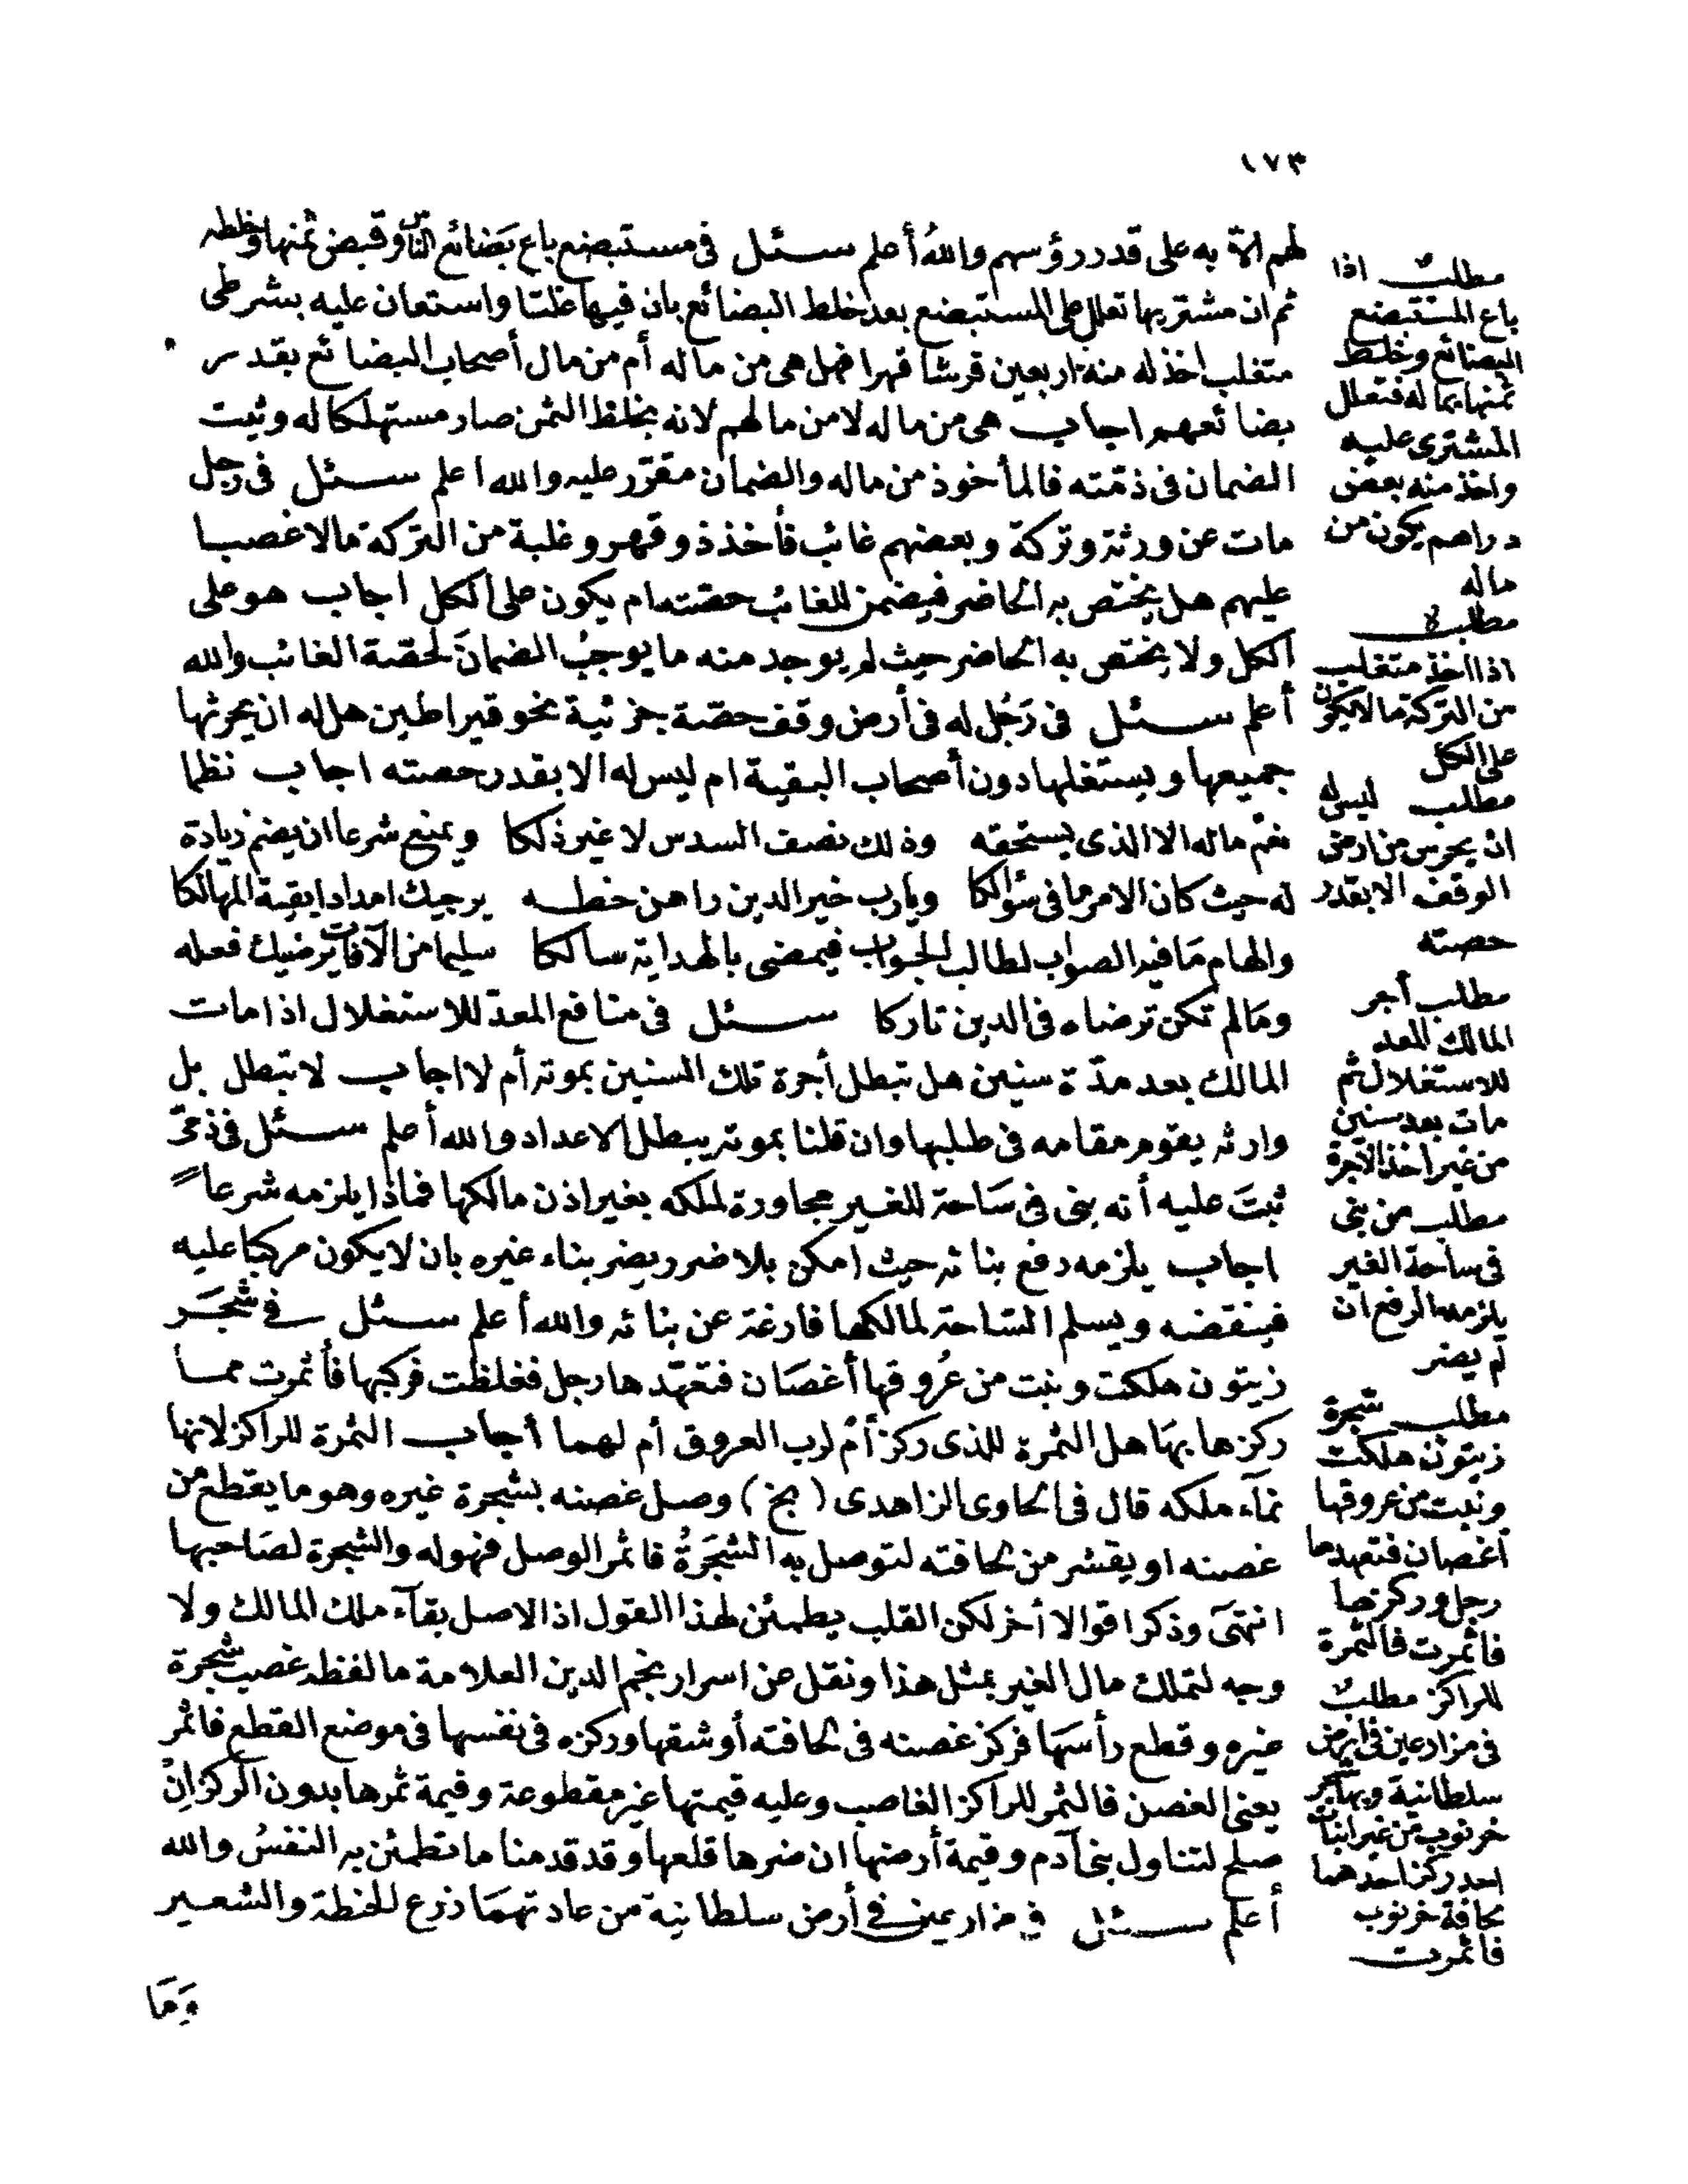 ١٧٣
لهم الا به على قدر رؤسهم والله أعلم سئل فى مستبضع باع بضائع الناس وقبض ثمنها وخلطه
ثم ان مشتريها تعلل على المستبضع بعد خلط البضائع بان فيها غلتا واستعان عليه بشرطى
متغلب اخذ له منه اربعين قرشا قهرا فهل هى من ماله أم من مال أصحاب البضائع بقدر
بضائعهم اجاب هى من ماله لا من مالهم لانه بخلط الثمن صار مستهلكا له وثبت
الضمان فى ذمّته فالمأخوذ من ماله والضمان مقرّر عليه والله اعلم سئل فى رجل
مات عن ورثة وتركة وبعضهم غائب فأخذ ذو قهر وغلبة من التركة مالا غصبا
عليهم هل يختص به الحاضر فيضمن للغائب حصّته ام يكون على الكل اجاب هو على
الكل ولا يختص به الحاضر حيث لم يوجد منه ما يوجبُ الضمانَ لحصّة الغائب والله
أعلم سئل فى رَجُل له فى أرض وقف حصّة جزئية نحو قيراطين هل له ان يحرثها
جميعها ويستغلها دون أصحاب البقية ام ليس له الا بقدر حصته اجاب نظما
نعم ماله الا الذى يستحقه وذلك نصف السدس لا غير ذلكا ويمنع شرعا ان يضم زيادة
له حيث كان الامر ما فى سؤالكا ويارب خير الدين راهن خطه يرجيك امدادا يقيه المهالكا
والهام مَا فيه الصواب لطالب الجواب فيمضى بالهداية سالكا سليما من الآفات يرضيك فعله
ومَالم تكن ترضاه فى الدين تاركا سئل فى منافع المعدّ للاستغلال اذا مات
المالك بعد مدّة سنين هل تبطل أجرة تلك السنين بموته أم لا اجاب لا تبطل بل
وارثه يقوم مقامه فى طلبها وان قلنا بموته يبطل الاعداد والله أعلم سئل فى ذمّى
ثبتَ عليه أنه بنى فى سَاحة للغير مجاورة لملكه بغير اذن مالكها فماذا يلزمه شرعاً
اجاب يلزمه رفع بنائه حيث امكن بلا ضرر يضر بناء غيره بان لا يكون مركبا عليه
فينقضه ويسلم السّاحة لمالكها فارغة عن بنائه والله أعلم سئل فى شجَر
زيتون هلكت ونبت من عُروقها أغصَان فتعهّدها رجل فغلظت فركبها فأثمرت مما
ركزها بهَا هل الثمرة للذى ركز أمْ لرب العروق أم لهما أجاب الثمرة للراكز لانها
نمآء ملكه قال فى الحاوى الزاهدى (بخ) وصل غصنه بشجرة غيره وهو ما يقطع من
غصنه او يقشر من لحافته لتوصل به الشجَرَةُ فاثمر الوصل فهو له والشجرة لصَاحبها
انتهَى وذكر اقوالا أخر لكن القلب يطمئن لهذا القول اذ الاصل بقآء ملك المالك ولا
وجه لتملك مال الغير بمثل هذا ونقل عن اسرار نجم الدين العلامة ما لفظه غصب شجرة
غيره وقطع رأسَها فركز غصنه فى لحافته أو شقها وركزه فى نفسها فى موضع القطع فاثمر
يعنى الغصن فالثمر للراكز الغاصب وعليه قيمتها غير مقطوعة وقيمة ثمرها بدون الركز اِنْ
صلح لتناول بنى آدم وقيمة أرضها ان ضرها قلعها وقد قدمنا ما تطمئن به النفسُ والله
أعلم سئل فى مزارعين فى أرض سلطانية من عادتهمَا زرع للحنطة والشعير
وَمَا
مطلبٌ اذا
باع المستبضع
البضائع وخلط
ثمنها بماله فتعلل
المشترى عليه
واخذ منه بعض
دراهم يكون من
ماله
مطلب
اذا اخذ متغلب
من التركة مالا يكون
على الكل
مطلب ليس له
ان يحرس من ارض
الوقف الا بقدر
حصته
مطلب أجر
المالك المعد
للاستغلال ثم
مات بعد سنين
من غير اخذ الأجرة
مطلب من بنى
فى ساحة الغير
يلزمه الرفع ان
لم يضر
مطلب شجرة
زيتون هلكت
ونبت من عروقها
أغصان فتعهدها
رجل وركزها
فاثمرت فالثمرة
للراكز مطلبٌ
فى مزارعين فى ارض
سلطانية وبها
خرنوب من غير انبات
احد ركز احدهما
بحافة خرنوب
فاثمرت